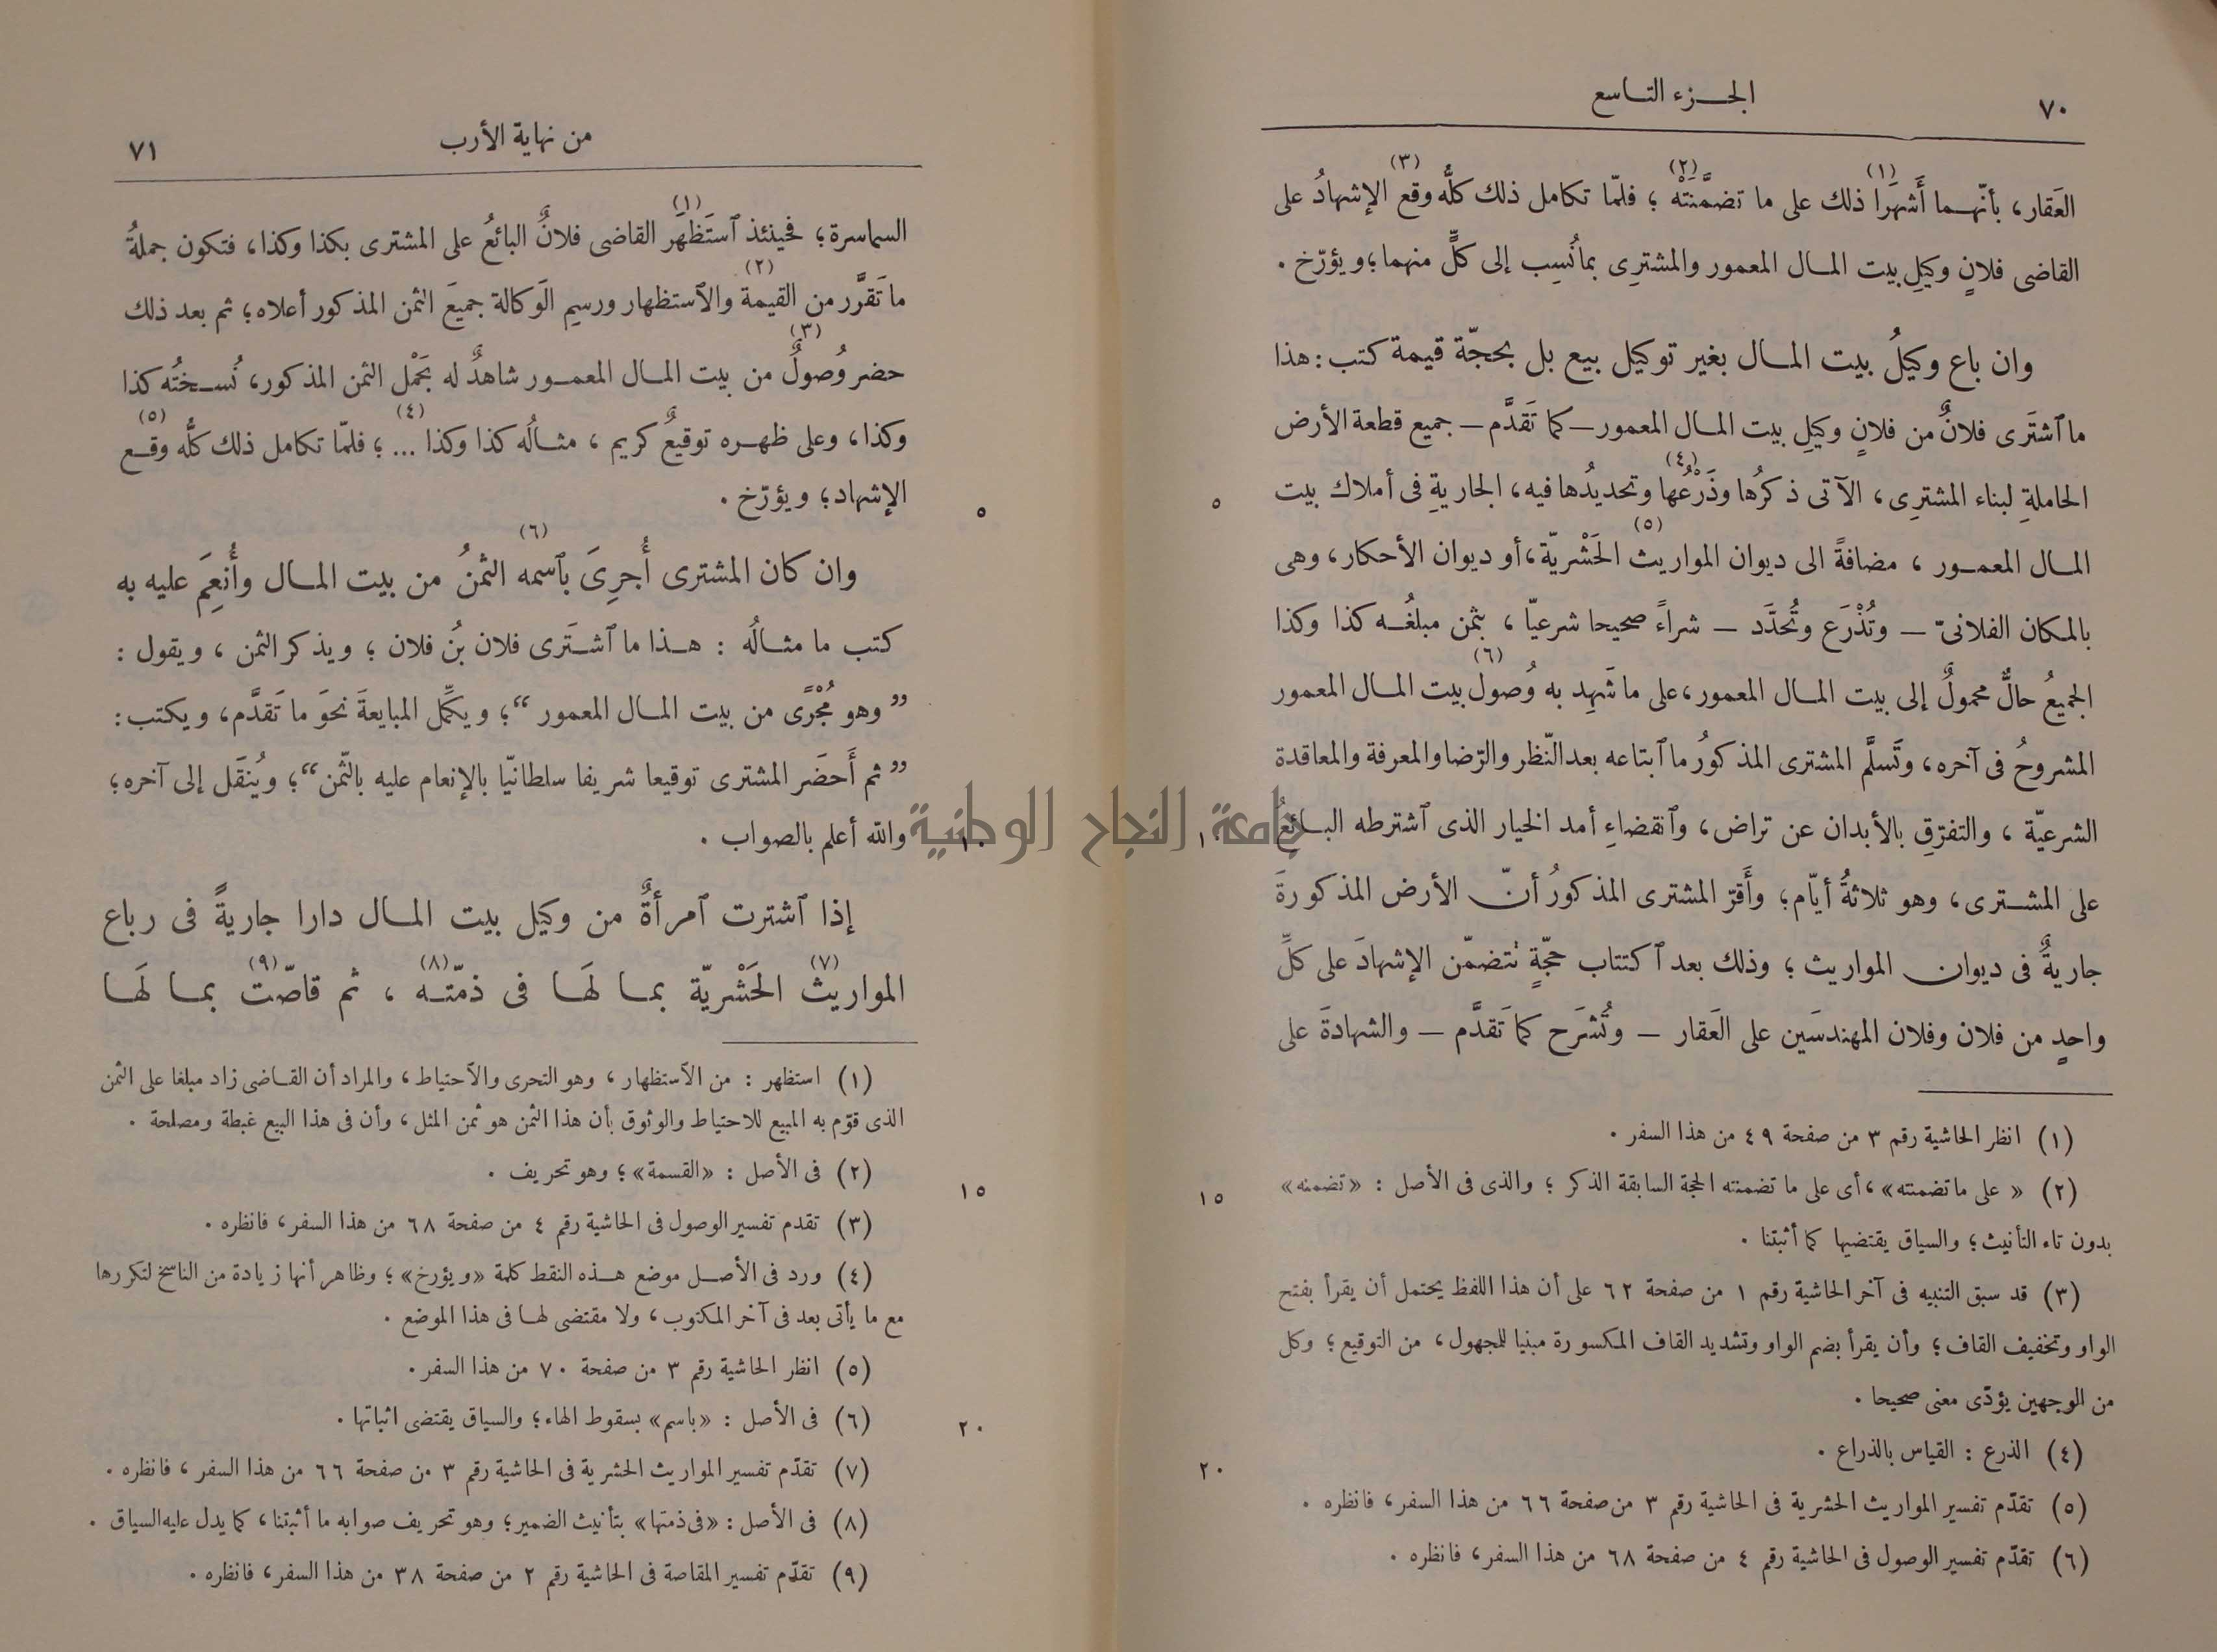 ٧٠
الجـــزء التــاسع
العَقار، بأنّهــما أَشهَرَا (١) ذلك على ما تضمَّنَتْه (٢) ؛ فلمّا تكامل ذلك كلُّه وقع (٣) الإشهادُ على
القاضى فلانٍ وكيلِ بيت المــال المعمور والمشترِى بما نُسِب إلى كلٍّ منهما؛ ويؤرّخ .
وان باع وكيلُ بيت المــال بغير توكيل بيع بل بحجّة قيمة كتب : هذا
ما ٱشتَرى فلانٌ من فلانٍ وكيلِ بيت المــال المعمور – كما تَقدَّم – جميع قطعة الأرض
الحاملةِ لبناء المشترِى، الآتى ذكرُها وذَرْعُها (٤) وتحديدُها فيه، الجاريةِ فى أملاك بيت
٥
المــال المعمــور ، مضافةً الى ديوان المواريث (٥) الحَشْريّة، أو ديوان الأحكار، وهى
بالمكان الفلانىّ – وتُذْرَع وتُحدَّد – شراءً صحيحا شرعيّا ، بثمن مبلغُــه كذا وكذا
الجميعُ حالٌّ محمولٌ إلى بيت المــال المعمور، على ما شَهِد به وُصول (٦) بيت المــال المعمور
المشروحُ فى آخره، وتَسلَّم المشترى المذكورُ ما ٱبتاعه بعد النّظر والرّضا والمعرفة والمعاقدة
الشرعيّة ، والتفرّقِ بالأبدان عن تراض، وٱنقضاءِ أمد الخيار الذى ٱشترطه البــائعُ
١٠
على المشــترى، وهو ثلاثةُ أيّام؛ وأَقرّ المشترى المذكورُ أنّ الأرض المذكورةَ
جاريةٌ فى ديوان المواريث ؛ وذلك بعد ٱكتتاب حجّةٍ تتضمّن الإشهادَ على كلِّ
واحدٍ من فلان وفلان المهندسَين على العَقار – وتُشرَح كما تَقدَّم – والشهادةَ على
(١) انظر الحاشية رقم ٣ من صفحة ٤٩ من هذا السفر .
(٢) « على ما تضمنته »، أى على ما تضمنته الحجة السابقة الذكر ؛ والذى فى الأصل : « تضمنه »
١٥
بدون تاء التأنيث؛ والسياق يقتضيها كما أثبتنا .
(٣) قد سبق التنبيه فى آخر الحاشية رقم ١ من صفحة ٦٢ على أن هذا اللفظ يحتمل أن يقرأ بفتح
الواو وتخفيف القاف؛ وأن يقرأ بضم الواو وتشديد القاف المكسورة مبنيا للمجهول، من التوقيع؛ وكل
من الوجهين يؤدّى معنى صحيحا .
(٤) الذرع : القياس بالذراع .
٢٠
(٥) تقدّم تفسير المواريث الحشرية فى الحاشية رقم ٣ من صفحة ٦٦ من هذا السفر، فانظره .
(٦) تقدّم تفسير الوصول فى الحاشية رقم ٤ من صفحة ٦٨ من هذا السفر، فانظره .
جامعة النجاح الوطنية
من نهاية الأرب
٧١
السماسرة؛ فحينئذ ٱستَظهَر (١) القاضى فلانٌ البائعُ على المشترى بكذا وكذا، فتكون جملةُ
ما تَقرَّر من القيمة (٢) والٱستظهار ورسيم الَوكالة جميعَ الثمن المذكور أعلاه؛ ثم بعد ذلك
حضر وُصولٌ (٣) من بيت المــال المعمــور شاهدٌ له بحَمْل الثمن المذكور، نُســختُه كذا
وكذا، وعلى ظهــره توقيعٌ كريم ، مثــالُه كذا وكذا (٤) ... ؛ فلمّا تكامل ذلك كلُّه وقــع (٥)
الإشهاد؛ ويؤرّخ .
٥
وان كان المشترى أُجرِىَ بٱسمه (٦) الثمنُ من بيت المــال وأُنعِمَ عليه به
كتب ما مثــالُه : هــذا ما ٱشــتَرى فلان بنُ فلان ؛ ويذكر الثمن ، ويقول :
” وهو مُجْرًى من بيت المــال المعمور “؛ ويكمِّل المبايعةَ نحوَ ما تَقدَّم، ويكتب :
” ثم أَحضَر المشترى توقيعا شريفا سلطانيّا بالإنعام عليه بالثّمن “؛ ويُنقَل إلى آخره؛
والله أعلم بالصواب .
١٠
إذا ٱشترت ٱمرأةٌ من وكيل بيت المــال دارا جاريةً فى رباع
المواريث (٧) الحَشْريّة بمــا لهَــا فى ذمّتــه (٨) ، ثم قاصّت (٩) بمــا لهَــا
(١) استظهر : من الٱستظهار ، وهو التحرى والٱحتياط ، والمراد أن القــاضى زاد مبلغا على الثمن
الذى قوّم به المبيع للاحتياط والوثوق بأن هذا الثمن هو ثمن المثل، وأن فى هذا البيع غبطة ومصلحة .
(٢) فى الأصل : «القسمة»؛ وهو تحريف .
١٥
(٣) تقدم تفسير الوصول فى الحاشية رقم ٤ من صفحة ٦٨ من هذا السفر، فانظره .
(٤) ورد فى الأصــل موضع هــذه النقط كلمة «ويؤرخ»؛ وظاهر أنها زيادة من الناسخ لتكررها
مع ما يأتى بعد فى آخر المكتوب، ولا مقتضى لهــا فى هذا الموضع .
(٥) انظر الحاشية رقم ٣ من صفحة ٧٠ من هذا السفر .
(٦) فى الأصل : «باسم» بسقوط الهاء؛ والسياق يقتضى اثباتها .
٢٠
(٧) تقدّم تفسير المواريث الحشرية فى الحاشية رقم ٣ من صفحة ٦٦ من هذا السفر ، فانظره .
(٨) فى الأصل : «فى ذمتها» بتأنيث الضمير؛ وهو تحريف صوابه ما أثبتنا، كما يدل عليه السياق .
(٩) تقدّم تفسير المقاصة فى الحاشية رقم ٢ من صفحة ٣٨ من هذا السفر، فانظره .